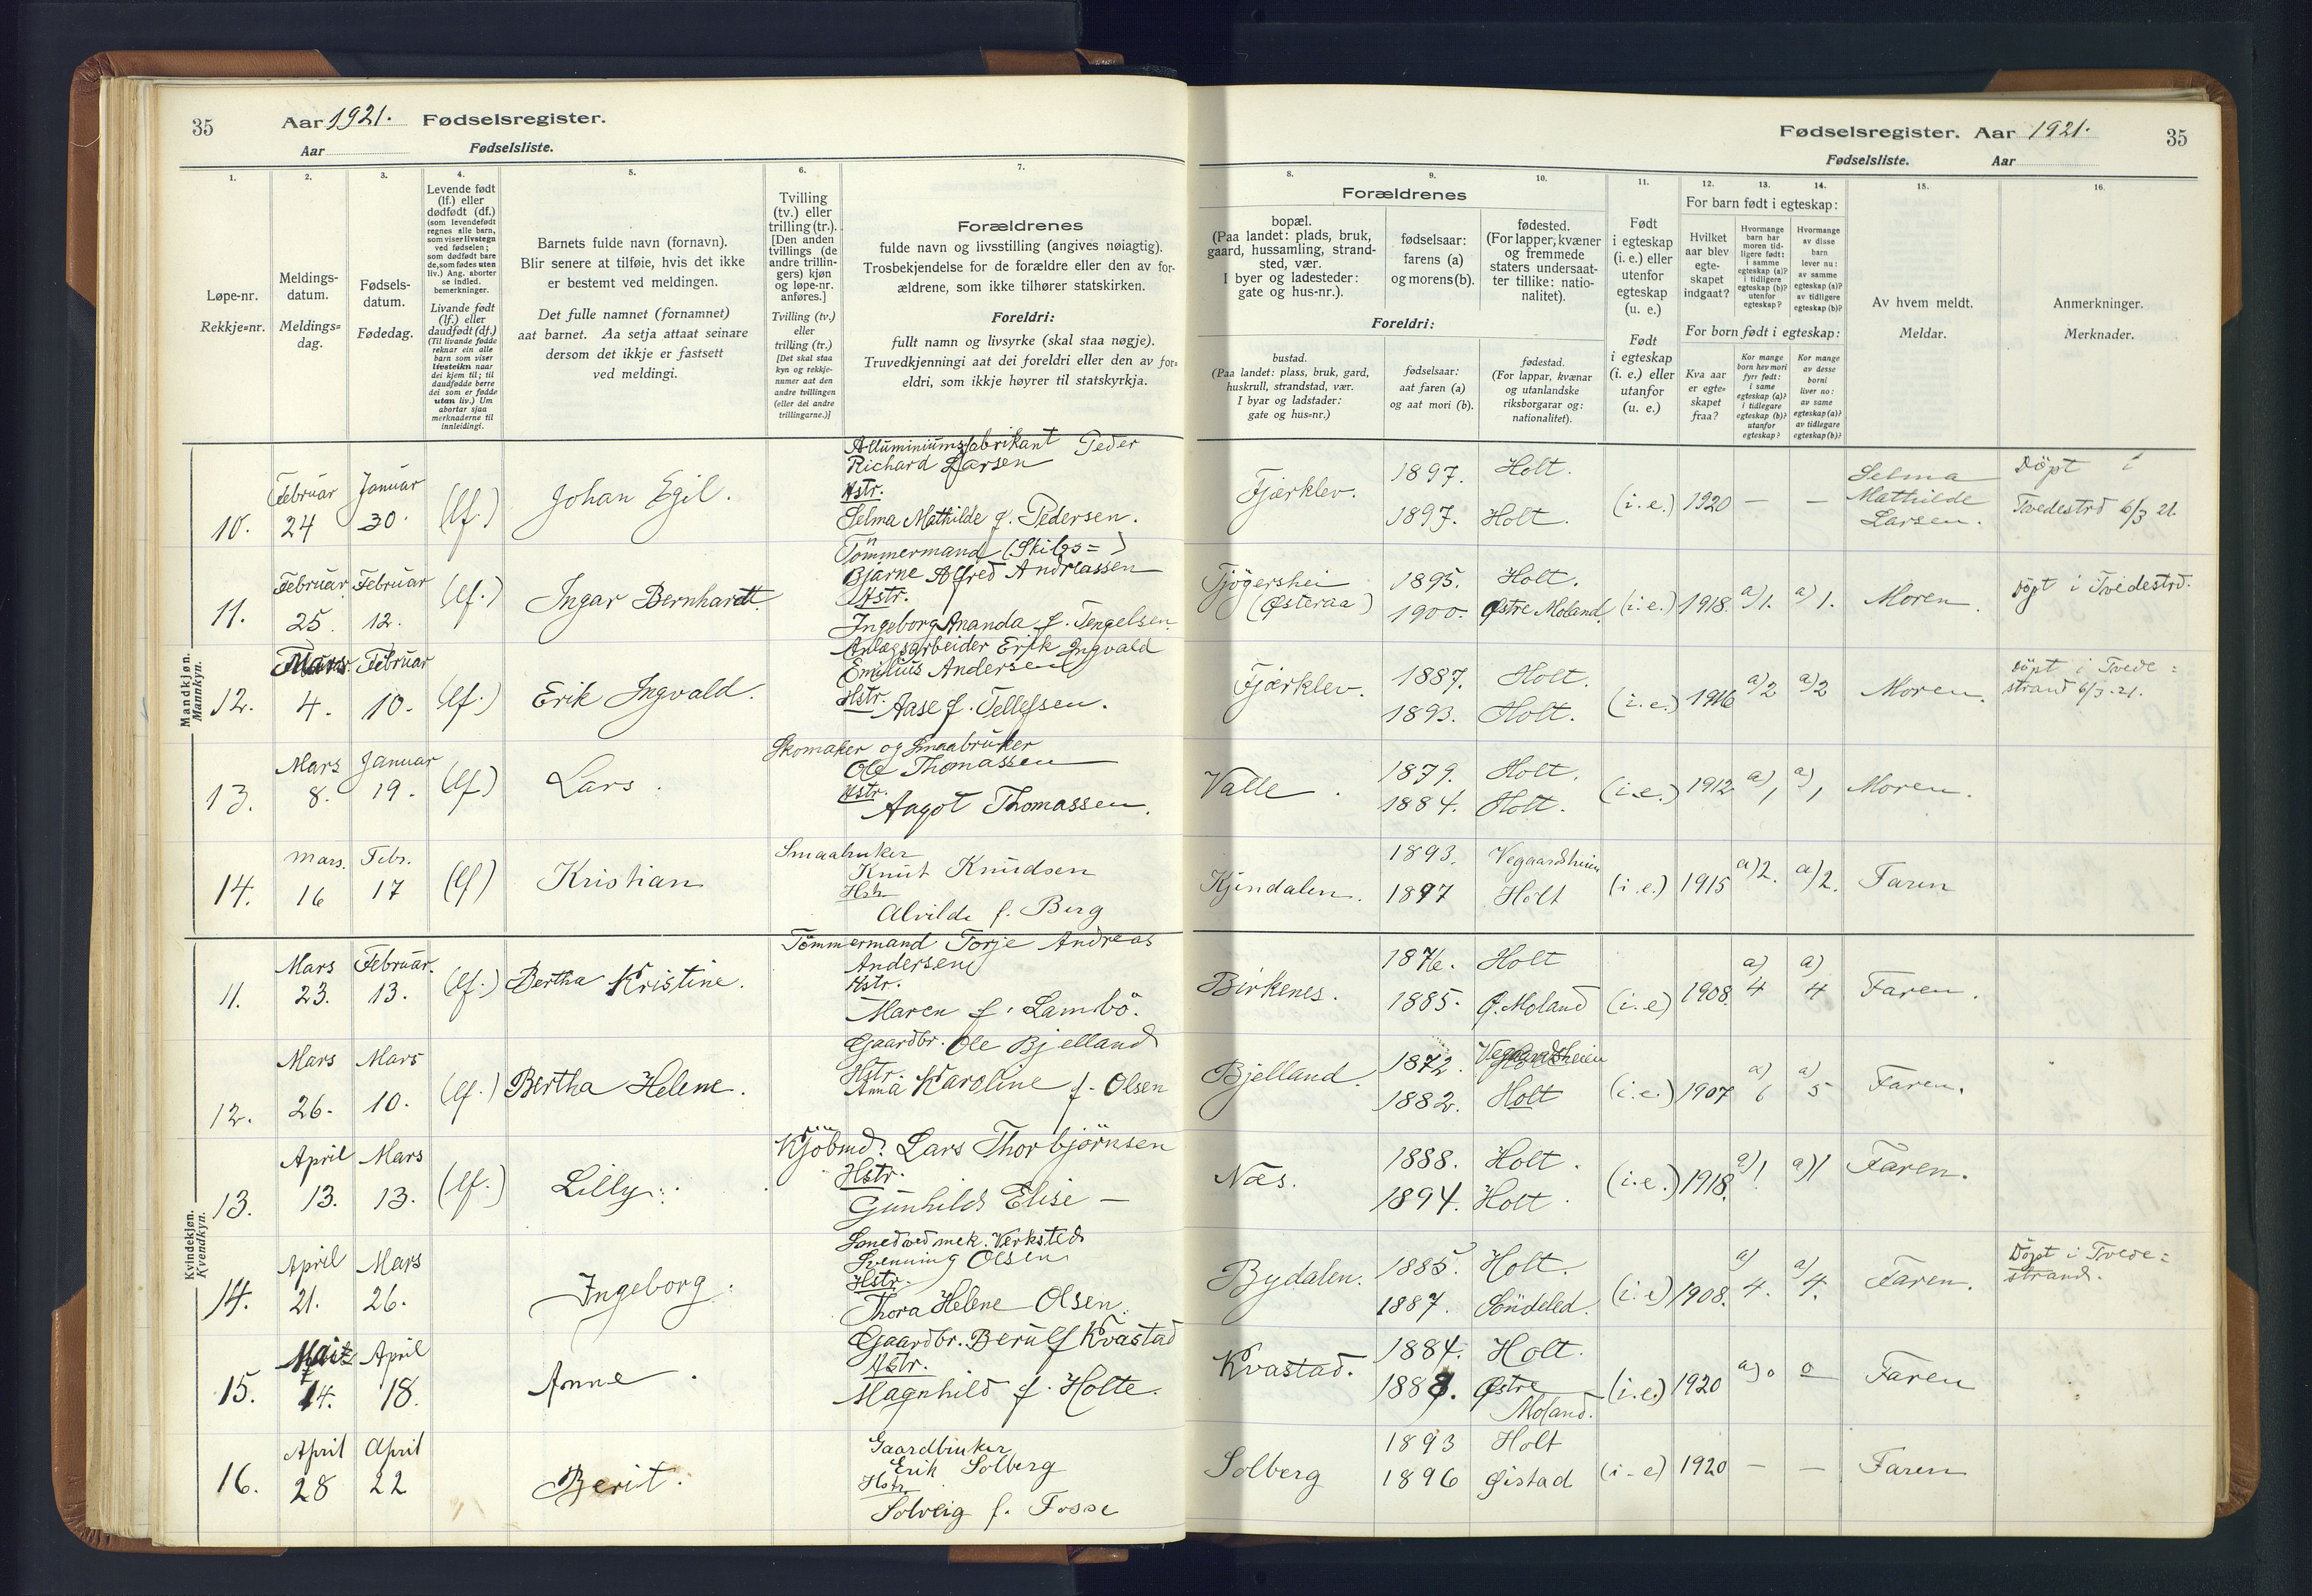 35 Aar 1921. Fødselsregister.
Aar Fødselsliste.
Fødselsregister. Aar 1921. 35
Fødselsliste. Aar
1.
Løpe-nr.
Rekkje=nr.
2.
Meldings-
datum.
Meldings=
dag.
3.
Fødsels-
datum.
Fødedag.
4.
Levende født
(lf.) eller
dødfødt (df.)
(som levendefødt
regnes alle barn,
som viser livstegn
ved fødselen;
som dødfødt bare
de, som fødes uten
liv.) Ang. aborter
se indled.
bemerkninger.
Livande født
(lf.) eller
daudfødt (df.)
(Til livande fødde
reknar ein alle
barn som viser
livsteikn naar
dei kjem til; til
daudfødde berre
dei som er fødde
utan liv.) Um
abortar sjaa
merknaderne til
innleidingi.
5.
Barnets fulde navn (fornavn).
Blir senere at tilføie, hvis det ikke
er bestemt ved meldingen.
Det fulle namnet (fornamnet)
aat barnet. Aa setja attaat seinare
dersom det ikkje er fastsett
ved meldingi.
6.
Tvilling
(tv.) eller
trilling (tr.).
[Den anden
tvillings (de
andre trillin-
gers) kjøn
og løpe-nr.
anføres.]
Tvilling (tv.)
eller
trilling (tr.)
[Det skal staa
kyn og rekkje-
numer aat den
andre tvillingen
(eller dei andre
trillingarne.)]
7.
Forældrenes
fulde navn og livsstilling (angives nøiagtig).
Trosbekjendelse for de forældre eller den av for-
ældrene, som ikke tilhører statskirken.
Foreldri:
fullt namn og livsyrke (skal staa nøgje).
Truvedkjenningi aat dei foreldri eller den av for=
eldri, som ikkje høyrer til statskyrkja.
Forældrenes
8.
bopæl.
(Paa landet: plads, bruk,
gaard, hussamling, strand-
sted, vær.
I byer og ladesteder:
gate og hus-nr.).
9.
fødselsaar:
farens (a)
og morens (b).
10.
fødested.
(For lapper, kvæner
og fremmede
staters undersaat-
ter tillike: natio-
nalitet).
Foreldri:
bustad.
(Paa landet: plass, bruk, gard,
huskrull, strandstad, vær.
I byar og ladstader:
gate og hus=nr.)
fødselsaar:
aat faren (a)
og aat mori (b).
fødestad.
(For lappar, kvænar
og utanlandske
riksborgarar og:
nationalitet).
11.
Født
i egteskap
(i. e.) eller
utenfor
egteskap
(u. e.)
Født
i egteskap
(i. e.) eller
utanfor
(u. e.)
12. 13. 14.
For barn født i egteskap:
Hvilket
aar blev
egte-
skapet
indgaat?
Hvormange
barn har
moren tid-
ligere født:
i samme
egteskap (a)?
i tidligere
egteskap (b)?
utenfor
egteskap?
Hvormange
av disse
barn
lever nu:
av samme
egteskap (a)?
av tidligere
egteskap (b)?
For born født i egteskap:
Kva aar
er egte=
skapet
fraa?
Kor mange
born hev mori
fyrr født:
i same
egteskap (a)?
i tidlegare
egteskap (b)?
utanfor
egteskap?
Kor mange
av desse
borni
liver no:
av same
egteskap (a)?
av tidlegare
egteskap (b)?
15.
Av hvem meldt.
Meldar.
16.
Anmerkninger.
Merknader.
Mandkjøn.
Mannkyn.
10. Februar 24 Januar 30. (lf.) Johan Egil.
Alluminiumsfabrikant Peder
Richard Larsen
Hstr.
Selma Mathilde f. Pedersen.
Fjærklev. 1897. Holt.
1897. Holt. (i.e.) 1920 — —
Selma
Mathilde
Larsen.
Döpt i
Tvedestrd 6/3 21.
11. Februar 25. Februar 12. (lf.) Ingar Bernhardt.
Tömmermand (Skibs=)
Bjarne Alfred Andreassen
Hstr.
Ingeborg Ananda f. Tengelsen.
Tjögershei
(Østeraa)
1895. Holt.
1900. Østre Moland. (i.e.) 1918. a) 1. a) 1. Moren.
Döpt i Tvedestrd.
12. Mars 4. Februar 10. (lf.) Erik Ingvald.
Anlægsarbeider Erik Ingvald
Emilius Andersen
Hstr. Aase f. Tellefsen.
Fjærklev. 1887. Holt.
1893. Holt. (i.e.) 1916 a) 2 a) 2 Moren.
Döpt i Tvede=
strand 6/3-21.
13. Mars 8. Januar 19. (lf) Lars.
Skomaker og Smaabruker
Ole Thomassen
Hstr.
Aagot Thomassen.
Valle. 1879. Holt.
1884. Holt. (i.e.) 1912 a) 1 a) 1 Moren.
14. Mars. 16 Febr. 17 (lf) Kristian
Smaabruker
Knut Knudsen
Hstr
Alvilde f. Berg
Kjendalen. 1893. Vegaardsheien
1897 Holt (i e.) 1915 a) 2. a) 2. Faren
Kvindekjøn.
Kvendkyn.
11. Mars 23. Februar. 13. (lf.) Bertha Kristine.
Tömmermand Torje Andreas
Andersen
Hstr.
Maren f. Lamibö.
Birkenes. 1876. Holt
1885. Ø. Moland (i.e) 1908. a) 4 a) 4 Faren.
12. Mars 26. Mars 10. (lf.) Bertha Helene.
Gaardbr. Ole Bjelland
Hstr.
Anna Karoline f. Olsen
Bjelland. 1872. Vegaardsheien
1882. Holt (i.e.) 1907 a) 6 a) 5 Faren.
13. April 13. Mars 13. (lf.) Lilly.
Kjöbmd. Lars Thorbjörnsen
Hstr.
Gunhild Elise —
Næs. 1888. Holt.
1894. Holt. (i.e.) 1918. a) 1 a) 1 Faren.
14. April 21. Mars 26. Ingeborg.
Smed ved mek. Verksted
Svenning Olsen
Hstr.
Thora Helene Olsen.
Bydalen. 1885. Holt.
1887. Söndeled. (i.e) 1908. a) 4. a) 4. Faren.
Döpt i Tvede=
strand.
15. Mai 4. April 18. Anne.
Gaardbr. Berulf Kvastad
Hstr.
Magnhild f. Holte.
Kvastad. 1884. Holt.
188 . Østre
Moland. (i.e.) 1920 a) 0 0 Faren
16. April 28 April 22 Berit.
Gaardbruker
Erik Solberg
Hstr.
Solveig f. Fosse
Solberg 1893 Holt
1896 Øistad (i-e) 1920 — — Faren